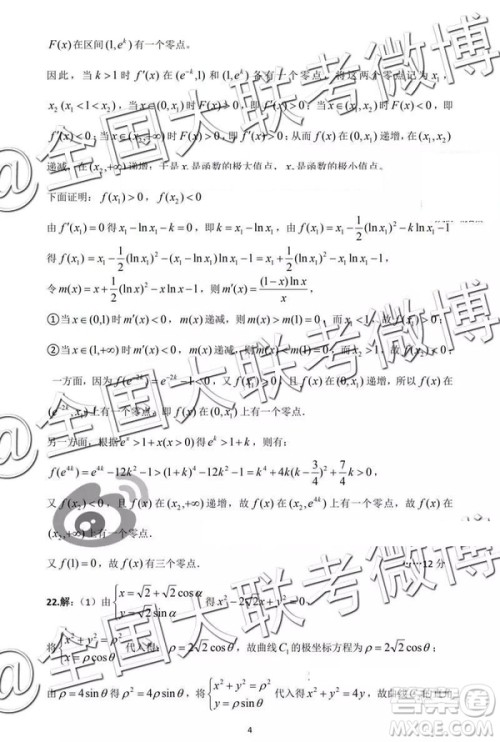 F(x)在区间(1,e^k)有一个零点。
因此，当k>1时f′(x)在(e^{-k},1)和(1,e^k)各有一个零点，将这两个零点记为x₁,
x₂(x₁<1<x₂)，当x∈(0,x₁)时F(x)>0，即f′(x)>0；当x∈(x₁,x₂)时F(x)<0，即
f′(x)<0；当x∈(x₂,+∞)时F(x)>0，即f′(x)>0；从而f(x)在(0,x₁)递增，在(x₁,x₂)
递减，在(x₂,+∞)递增；于是x₁是函数的极大值点，x₂是函数的极小值点。
下面证明：f(x₁)>0，f(x₂)<0
由f′(x₁)=0得x₁-ln x₁-k=0，即k=x₁-ln x₁，由f(x₁)=x₁-1/2(ln x₁)²-k ln x₁-1
得f(x₁)=x₁-1/2(ln x₁)²-(x₁-ln x₁)ln x₁-1=x₁+1/2(ln x₁)²-x₁ln x₁-1，
令m(x)=x+1/2(ln x)²-x ln x-1，则m′(x)=(1-x)ln x/x，
①当x∈(0,1)时m′(x)<0，m(x)递减，则m(x)>m(1)=0，而x₁<1，故f(x₁)>0；
②当x∈(1,+∞)时m′(x)<0，m(x)递减，则m(x)<m(1)=0，而x₂>1，故f(x₂)<0；
一方面，因为f(e^{-2k})=e^{-2k}-1<0，又f(x₁)>0，且f(x)在(0,x₁)递增，所以f(x)在
(e^{-2k},x₁)上有一个零点，即f(x)在(0,x₁)上有一个零点.
另一方面，根据e^x>1+x(x>0)得e^k>1+k，则有：
f(e^{4k})=e^{4k}-12k²-1>(1+k)⁴-12k²-1=k⁴+4k(k-3/4)²+7/4k>0，
又f(x₂)<0，且f(x)在(x₂,+∞)递增，故f(x)在(x₂,e^{4k})上有一个零点，故f(x)在
(x₂,+∞)上有一个零点.
又f(1)=0，故f(x)有三个零点.
……12分
22.解：（1）由{x=√2+√2cosα y=√2sinα 得x²-2√2x+y²=0，
将{x²+y²=ρ² x=ρcosθ 代入得：ρ=2√2cosθ，故曲线C₁的极坐标方程为ρ=2√2cosθ；
由ρ=4sinθ得ρ²=4ρsinθ，将{x²+y²=ρ² y=ρsinθ 代入得x²+y²=4y，故曲线
4
@全国大联考微博
@全国大联考微博
作业帮